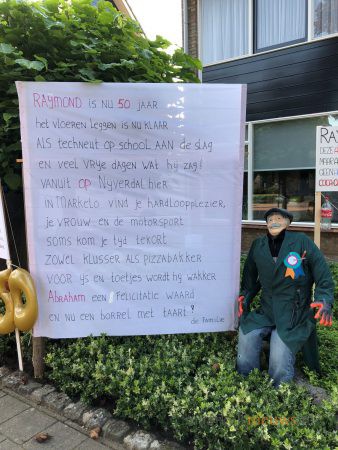 RAYMOND is NU 50 JAAR
het vloeren leggen is nu klaar
ALS techneut op school AAN de slag
en veel vrye dagen wat hy zag!
VANUIT op Nyverdal hier
in Markelo vind je hardloopplezier,
je vrouw en de motorsport
soms kom je tyd tekort
zowel klusser als pizzabakker
voor ys en toetjes wordt hy wakker
Abraham een felicitatie waard
en nu een borrel met taart!
de familie